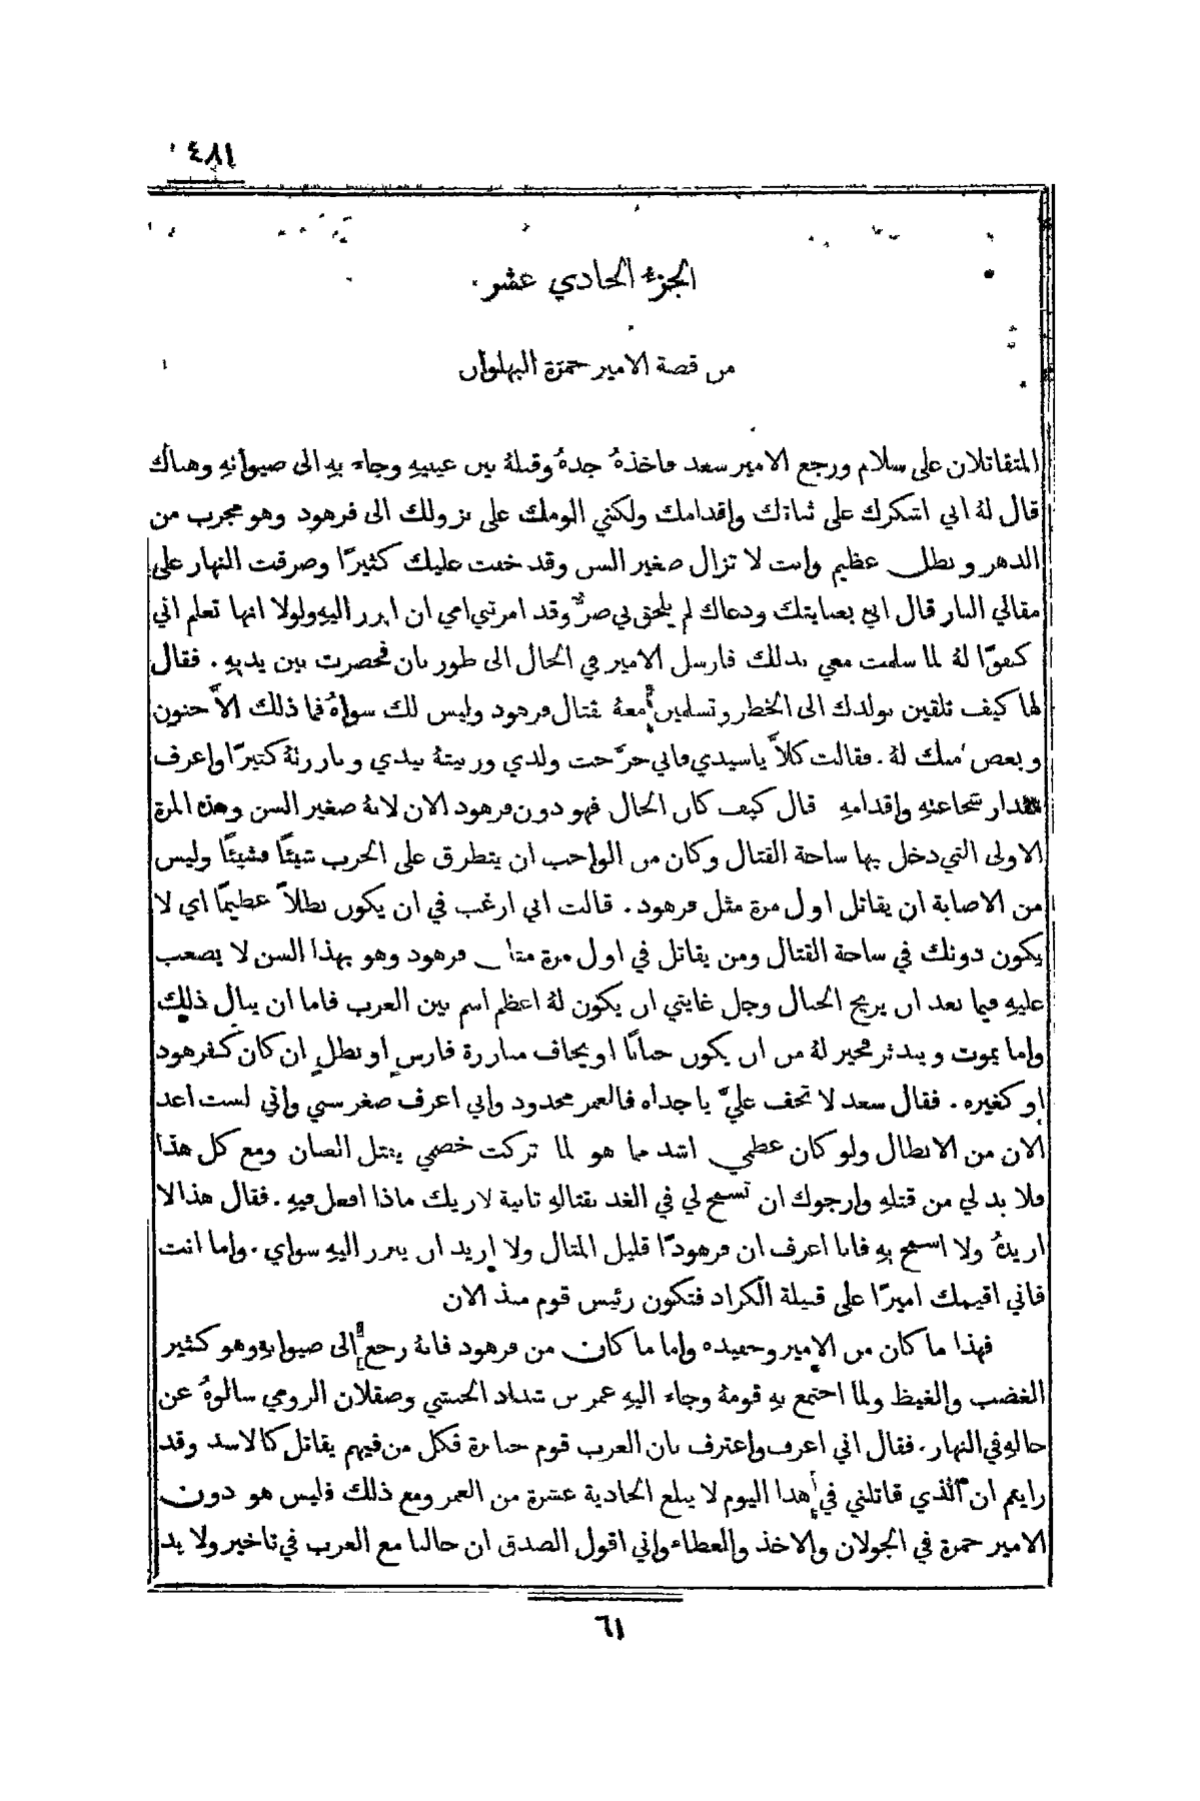 ٤٨١
الجزء الحادي عشر
من قصة الامير حمزة البهلوان
المتقاتلان على سلام ورجع الامير سعد فاخذهُ جدهُ وقبلهُ بين عينيهِ وجاء بهِ الى صيوانهِ وهناك
قال لهُ اني اشكرك على ثباتك واقدامك ولكني الومك على نزولك الى فرهود وهو مجرب من
الدهر وبطل عظيم وانت لا تزال صغير السن وقد خفت عليك كثيرًا وصرفت النهار على
مقالي النار قال اني بعنايتك ودعاك لم يلحق بي ضرٌّ وقد امرتني امي ان ابرز اليهِ ولولا انها تعلم اني
كفوًا لهُ لما سلمت معي بذلك فارسل الامير في الحال الى طوربان فحضرت بين يديهِ. فقال
لها كيف تلقين بولدك الى الخطر وتسلمين معهُ بقتال فرهود وليس لك سواهُ فما ذلك الاَّ جنون
وبعض منك لهُ. فقالت كلاَّ يا سيدي فاني حرَّجت ولدي وربيتهُ بيدي وبارزتهُ كثيرًا واعرف
مقدار شجاعتهِ واقدامهِ قال كيف كان الحال فهو دون فرهود الان لانهُ صغير السن وهذه المرة
الاولى التي دخل بها ساحة القتال وكان من الواجب ان يتطرق على الحرب شيئًا فشيئًا وليس
من الاصابة ان يقاتل اول مرة مثل فرهود. قالت اني ارغب في ان يكون بطلاً عظيمًا اي لا
يكون دونك في ساحة القتال ومن يقاتل في اول مرة مثل فرهود وهو بهذا السن لا يصعب
عليهِ فيما بعد ان يزيح الجبال وجل غايتي ان يكون لهُ اعظم اسم بين العرب فاما ان ينال ذلك
واما يموت ويندثر فخير لهُ من ان يكون جبانًا او يخاف مبارزة فارس او بطل ان كان كفرهود
او كغيره. فقال سعد لا تخف عليَّ يا جداه فالعمر محدود واني اعرف صغر سني واني لست اعد
الان من الابطال ولو كان عظمي اشد مما هو لما تركت خصمي يفتل العنان ومع كل هذا
فلا بد لي من قتلهِ وارجوك ان تسمح لي في الغد بقتالهِ ثانية لاريك ماذا افعل فيهِ. فقال هذا لا
اريدهُ ولا اسمح بهِ فانا اعرف ان فرهودًا قليل المثال ولا اريد ان يبرز اليهِ سواي. واما انت
فاني اقيمك اميرًا على قبيلة الكراد فتكون رئيس قوم منذ الان
فهذا ما كان من الامير وحفيده واما ما كان من فرهود فانهُ رجع الى صيوانهِ وهو كثير
الغضب والغيظ ولما اجتمع بهِ قومهُ وجاء اليهِ عمر بن شداد الحبشي وصقلان الرومي سالوهُ عن
حالهِ في النهار. فقال اني اعرف واعترف بان العرب قوم جبابرة فكل من فيهم يقاتل كالاسد وقد
رايتم ان الذي قاتلني في هذا اليوم لا يبلغ الحادية عشرة من العمر ومع ذلك فليس هو دون
الامير حمزة في الجولان والاخذ والعطاء واني اقول الصدق ان حالنا مع العرب في تاخير ولا بد
٦١